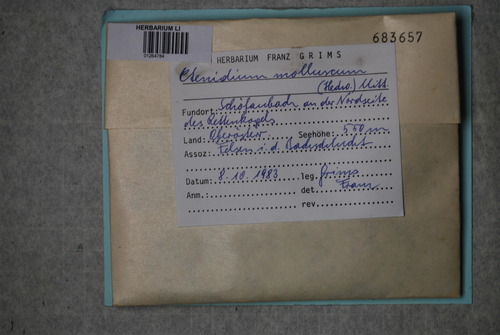 HERBARIUM LI
683657
HERBARIUM FRANZ GRIMS
Ctenidium molluscum
(Hedw.) Mitt.
Fundort: an der Nordseite
des
Land: Oberösterr. Seehöhe: 550 m
Assoz: Felsen i. d.
Datum: 8. 10. 1983 leg. Grims
Anm.: det. Franz
rev.